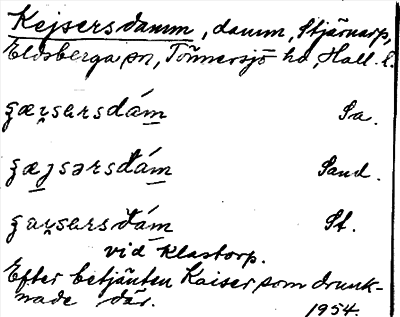 Kejsersdamm, damm, Stjärnarp,
Eldsberga sn, Tönnersjö hd, Hall. l.
ꞩæı̯sɐrsdám Sa.
ꞩæȷsərsđám Sand.
ꞩaı̯sɐrsđám St.
vid Klastorp.
Efter betjänten Kaiser som drunk-
nade där.
1954.